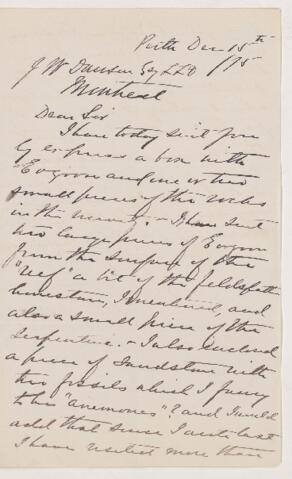 Perth Dec 15th
/75
J W Dawson Esq LLD
Montreal
Dear Sir
I have today sent you
by express a box with
Eozoon and one or two
small pieces of the rocks
in the vicinity. - I have sent
two large pieces of Eozoon
from the surface of the
"reef" a bit of the feldspathic
limestone, I mentioned, and
also a small piece of the
serpentine. - I also enclosed
a piece of sandstone with
two fossils which I fancy
to be "anemones"? and I would
add that since I wrote last
I have visited more than